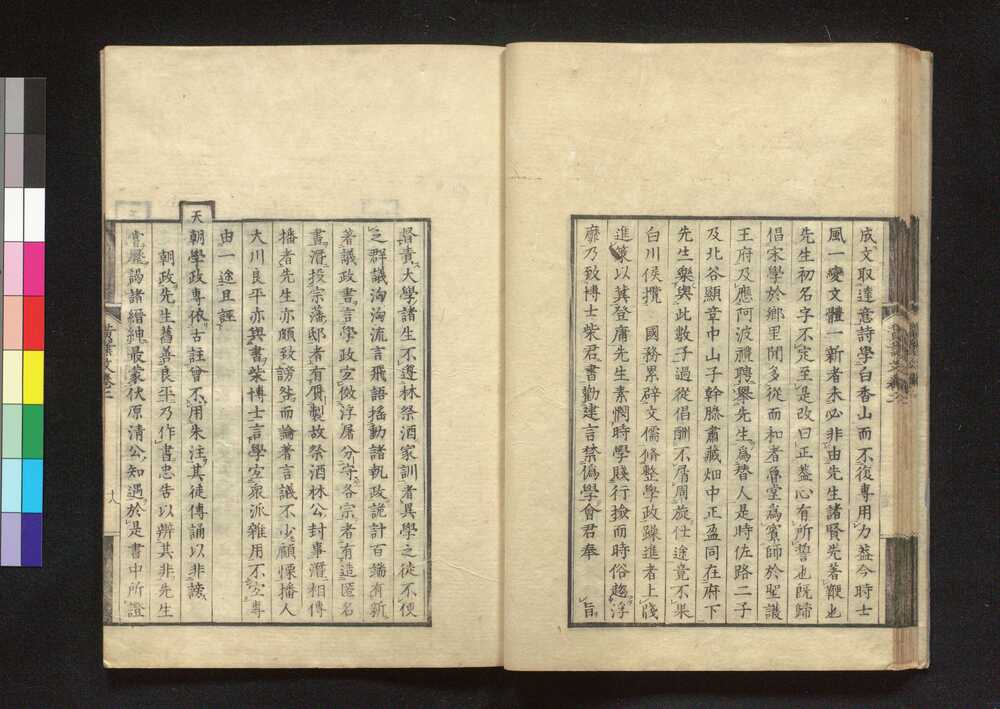 成文取達意詩學白香山而不復專用力益今時士
風一變文體一新者未必非由先生諸賢先著鞭也
先生初名字不定至是改曰正盈心有所誓也旣歸
倡宋學於鄉里聞多從而和者魯堂為賓師於聖護
王府及應阿波禮聘擧先生為替人是時佐路二子
及北谷顯章中山子幹滕肅藏畑中正盈同在府下
先生樂與此數子過從倡酬不屑周旋仕途竟不果
白川侯攬 國務累辟文儒脩整學政躁進者上牋
進策以冀登庸先生素憫時學賤行撿而時俗趨浮
靡乃致博士柴君書勸建言禁僞學會君奉 旨
督責大學諸生不遵林祭酒家訓者異學之徒不便
之群議洶洶流言飛語搖動諸執政詭計百端有新
著議政書言學政宜倣浮屠分守各宗者有造匿名
書潛投宗藩邸者有贋製故祭酒林公封事潛相傳
播者先生亦頗致謗然而論著言議不少顧慄播人
大川良平亦與書柴博士言學宜衆派雜用不宜專
由一途且誣
天朝學政專依古註曾不用朱注其徒傳誦以非謗
朝政先生舊善良平乃作書忠告以辨其非先生
嘗歷謁諸縉紳最蒙伏原清公知遇於是書中所證